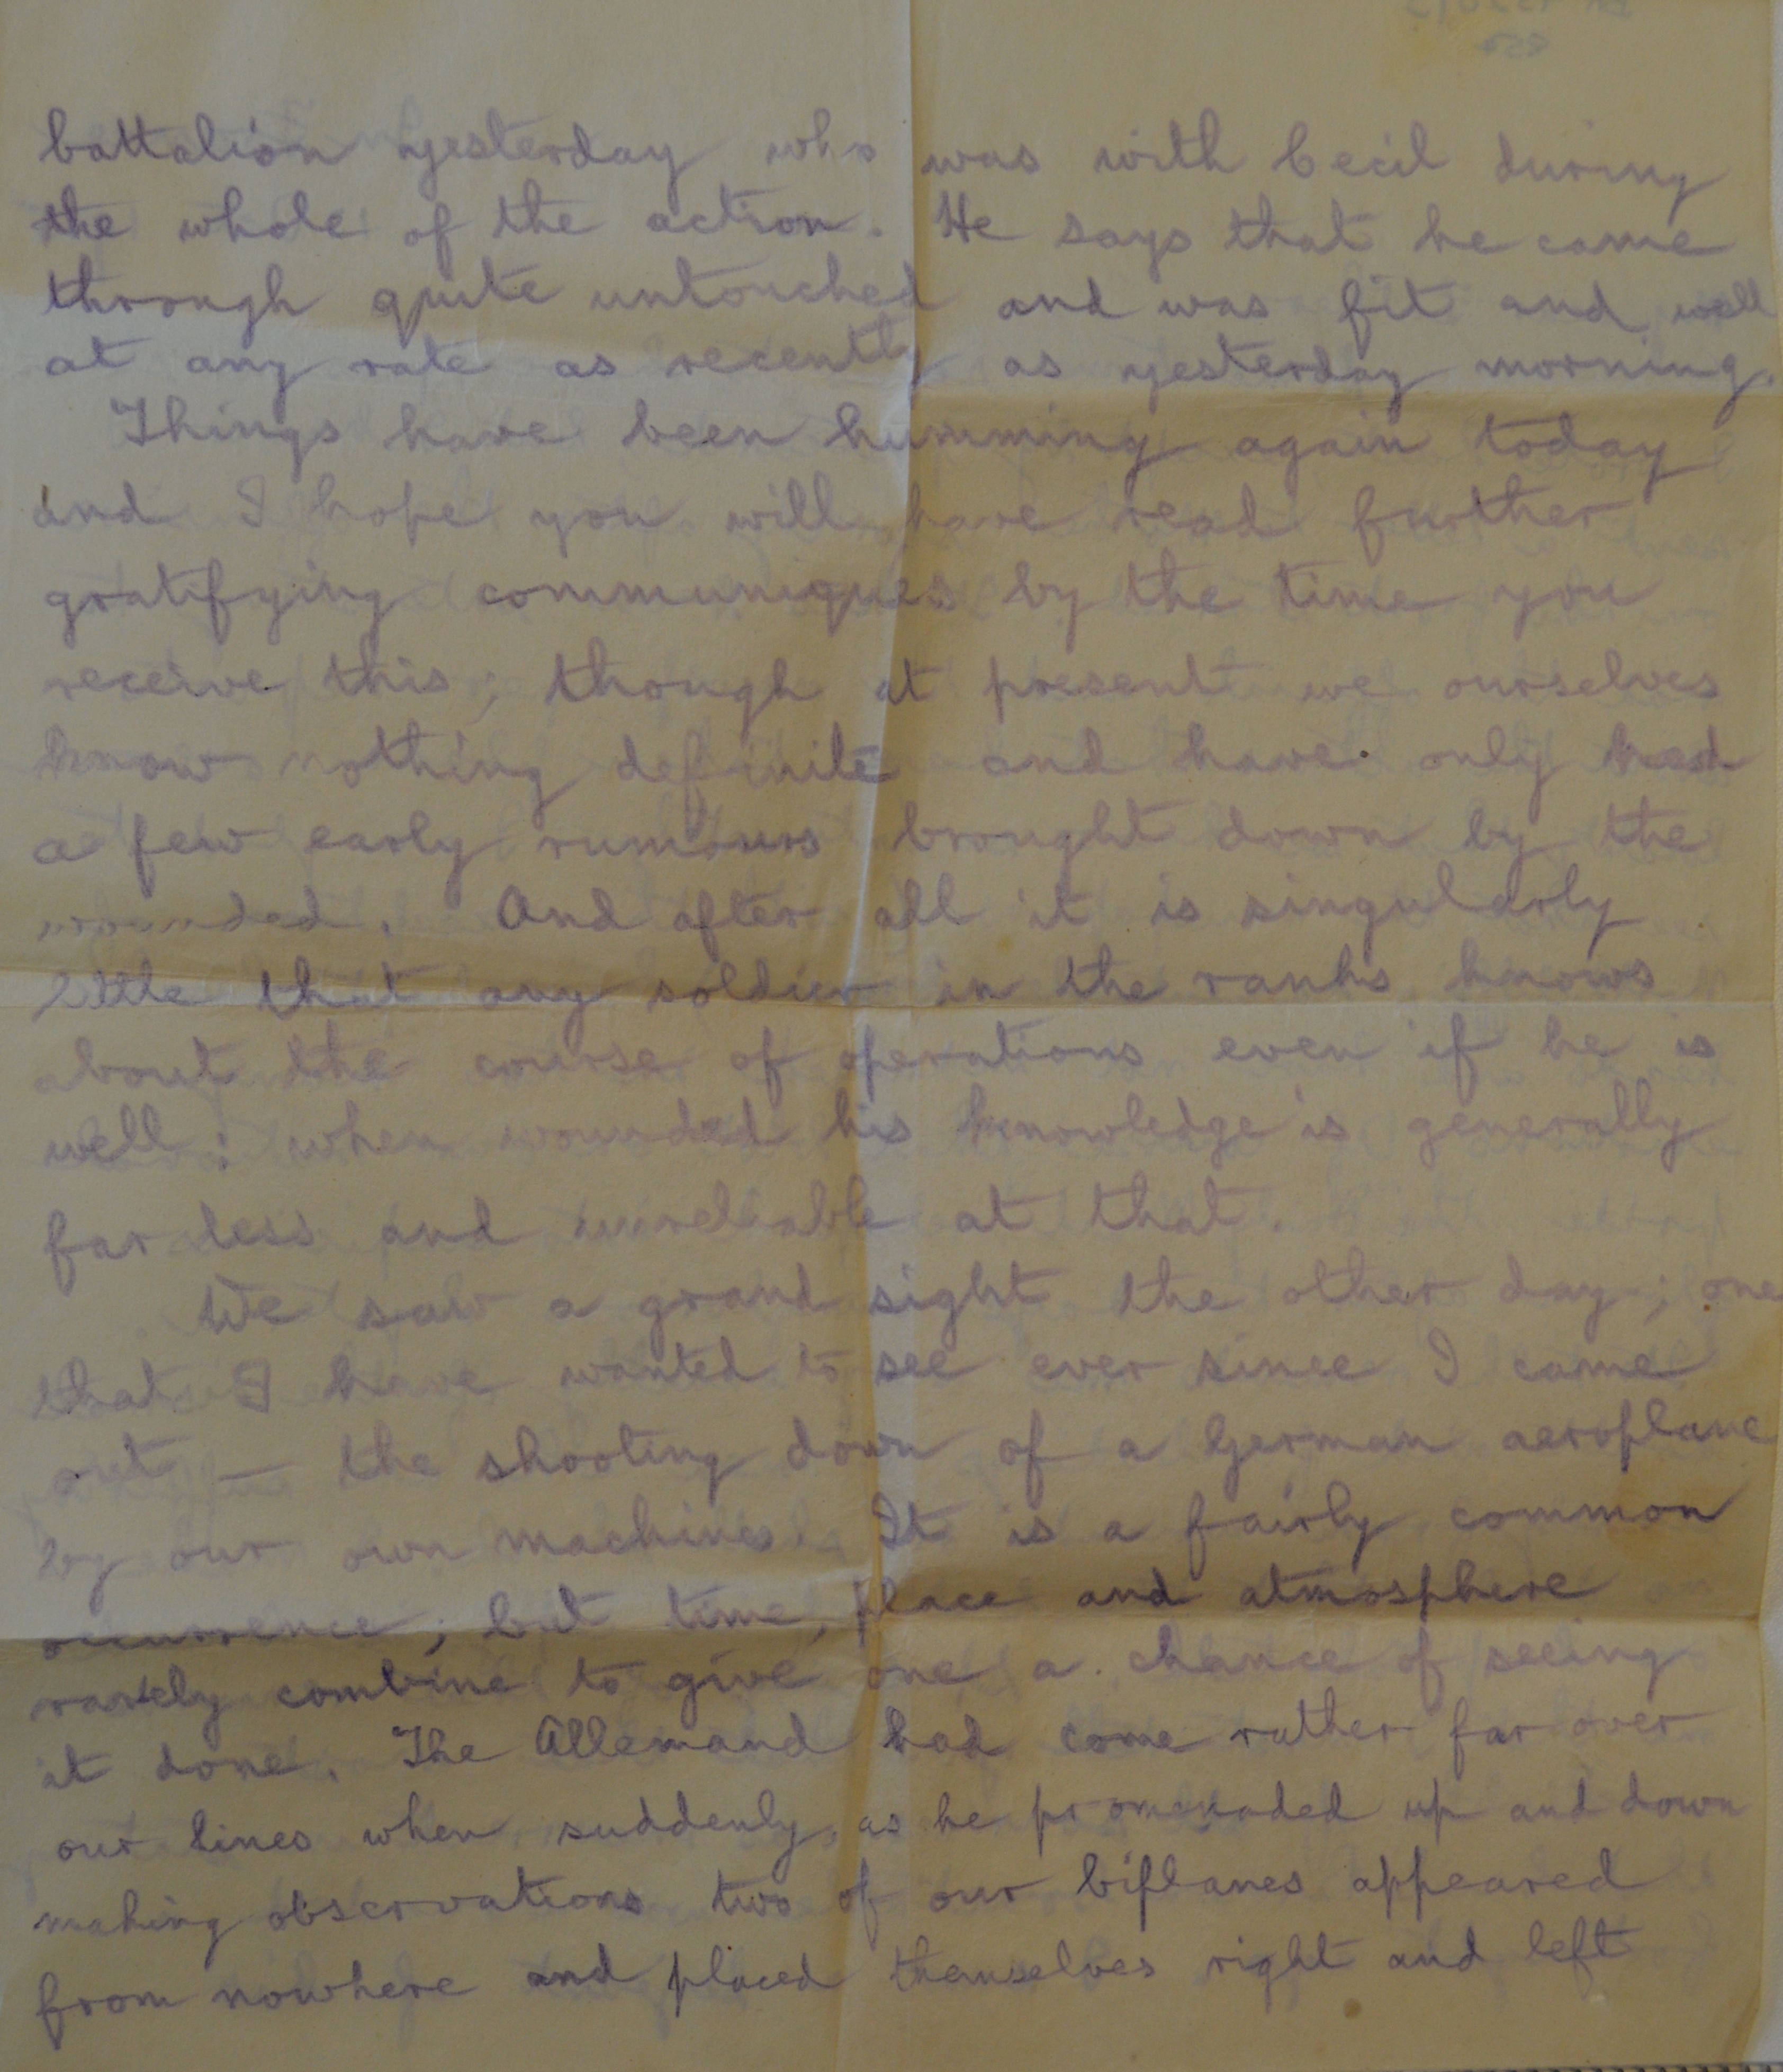 battalion yesterday who was with Cecil during
the whole of the action. He says that he came
through quite untouched and was fit and well
at any rate as recently as yesterday morning.
Things have been humming again today
and I hope you will have read further
gratifying communiques by the time you
receive this; though at present we ourselves
know nothing definite and have only had
a few early rumours brought down by the
wounded. And after all it is singularly
little that any soldier in the ranks knows
about the course of operations even if he is
well; when wounded his knowledge is generally
far less and unreliable at that.
We saw a grand sight the other day; one
that I have wanted to see ever since I came
out — the shooting down of a German aeroplane
by our own machines. It is a fairly common
occurrence; but time, place and atmosphere
rarely combine to give one a chance of seeing
it done. The Allemand had come rather far over
our lines when suddenly, as he promenaded up and down
making observations two of our biplanes appeared
from nowhere and placed themselves right and left